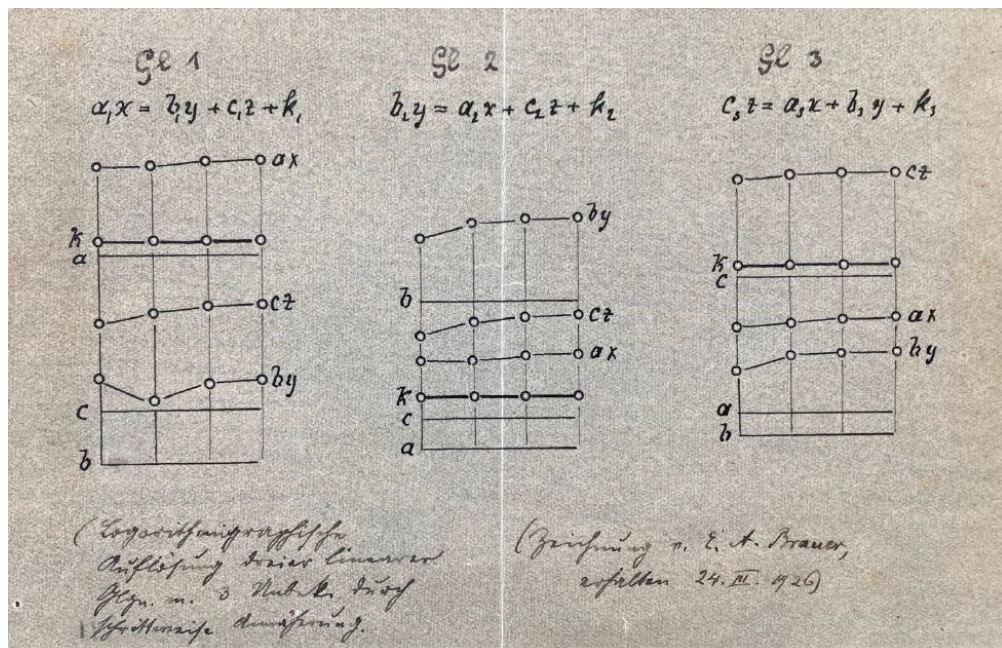 Gl 1
a₁x = b₁y + c₁z + k₁
ax
k
a
cz
by
c
b
Gl 2
b₂y = a₂x + c₂z + k₂
by
b
cz
ax
k
c
a
Gl 3
c₃z = a₃x + b₃y + k₃
cz
k
c
ax
by
a
b
(Logarithmigraphische
Auflösung dreier linearer
Glgn. m. 3 Unbek. durch
schrittweise Annäherung.
(Zeichnung v. E. A. Brauer,
erhalten 24. III. 1926)